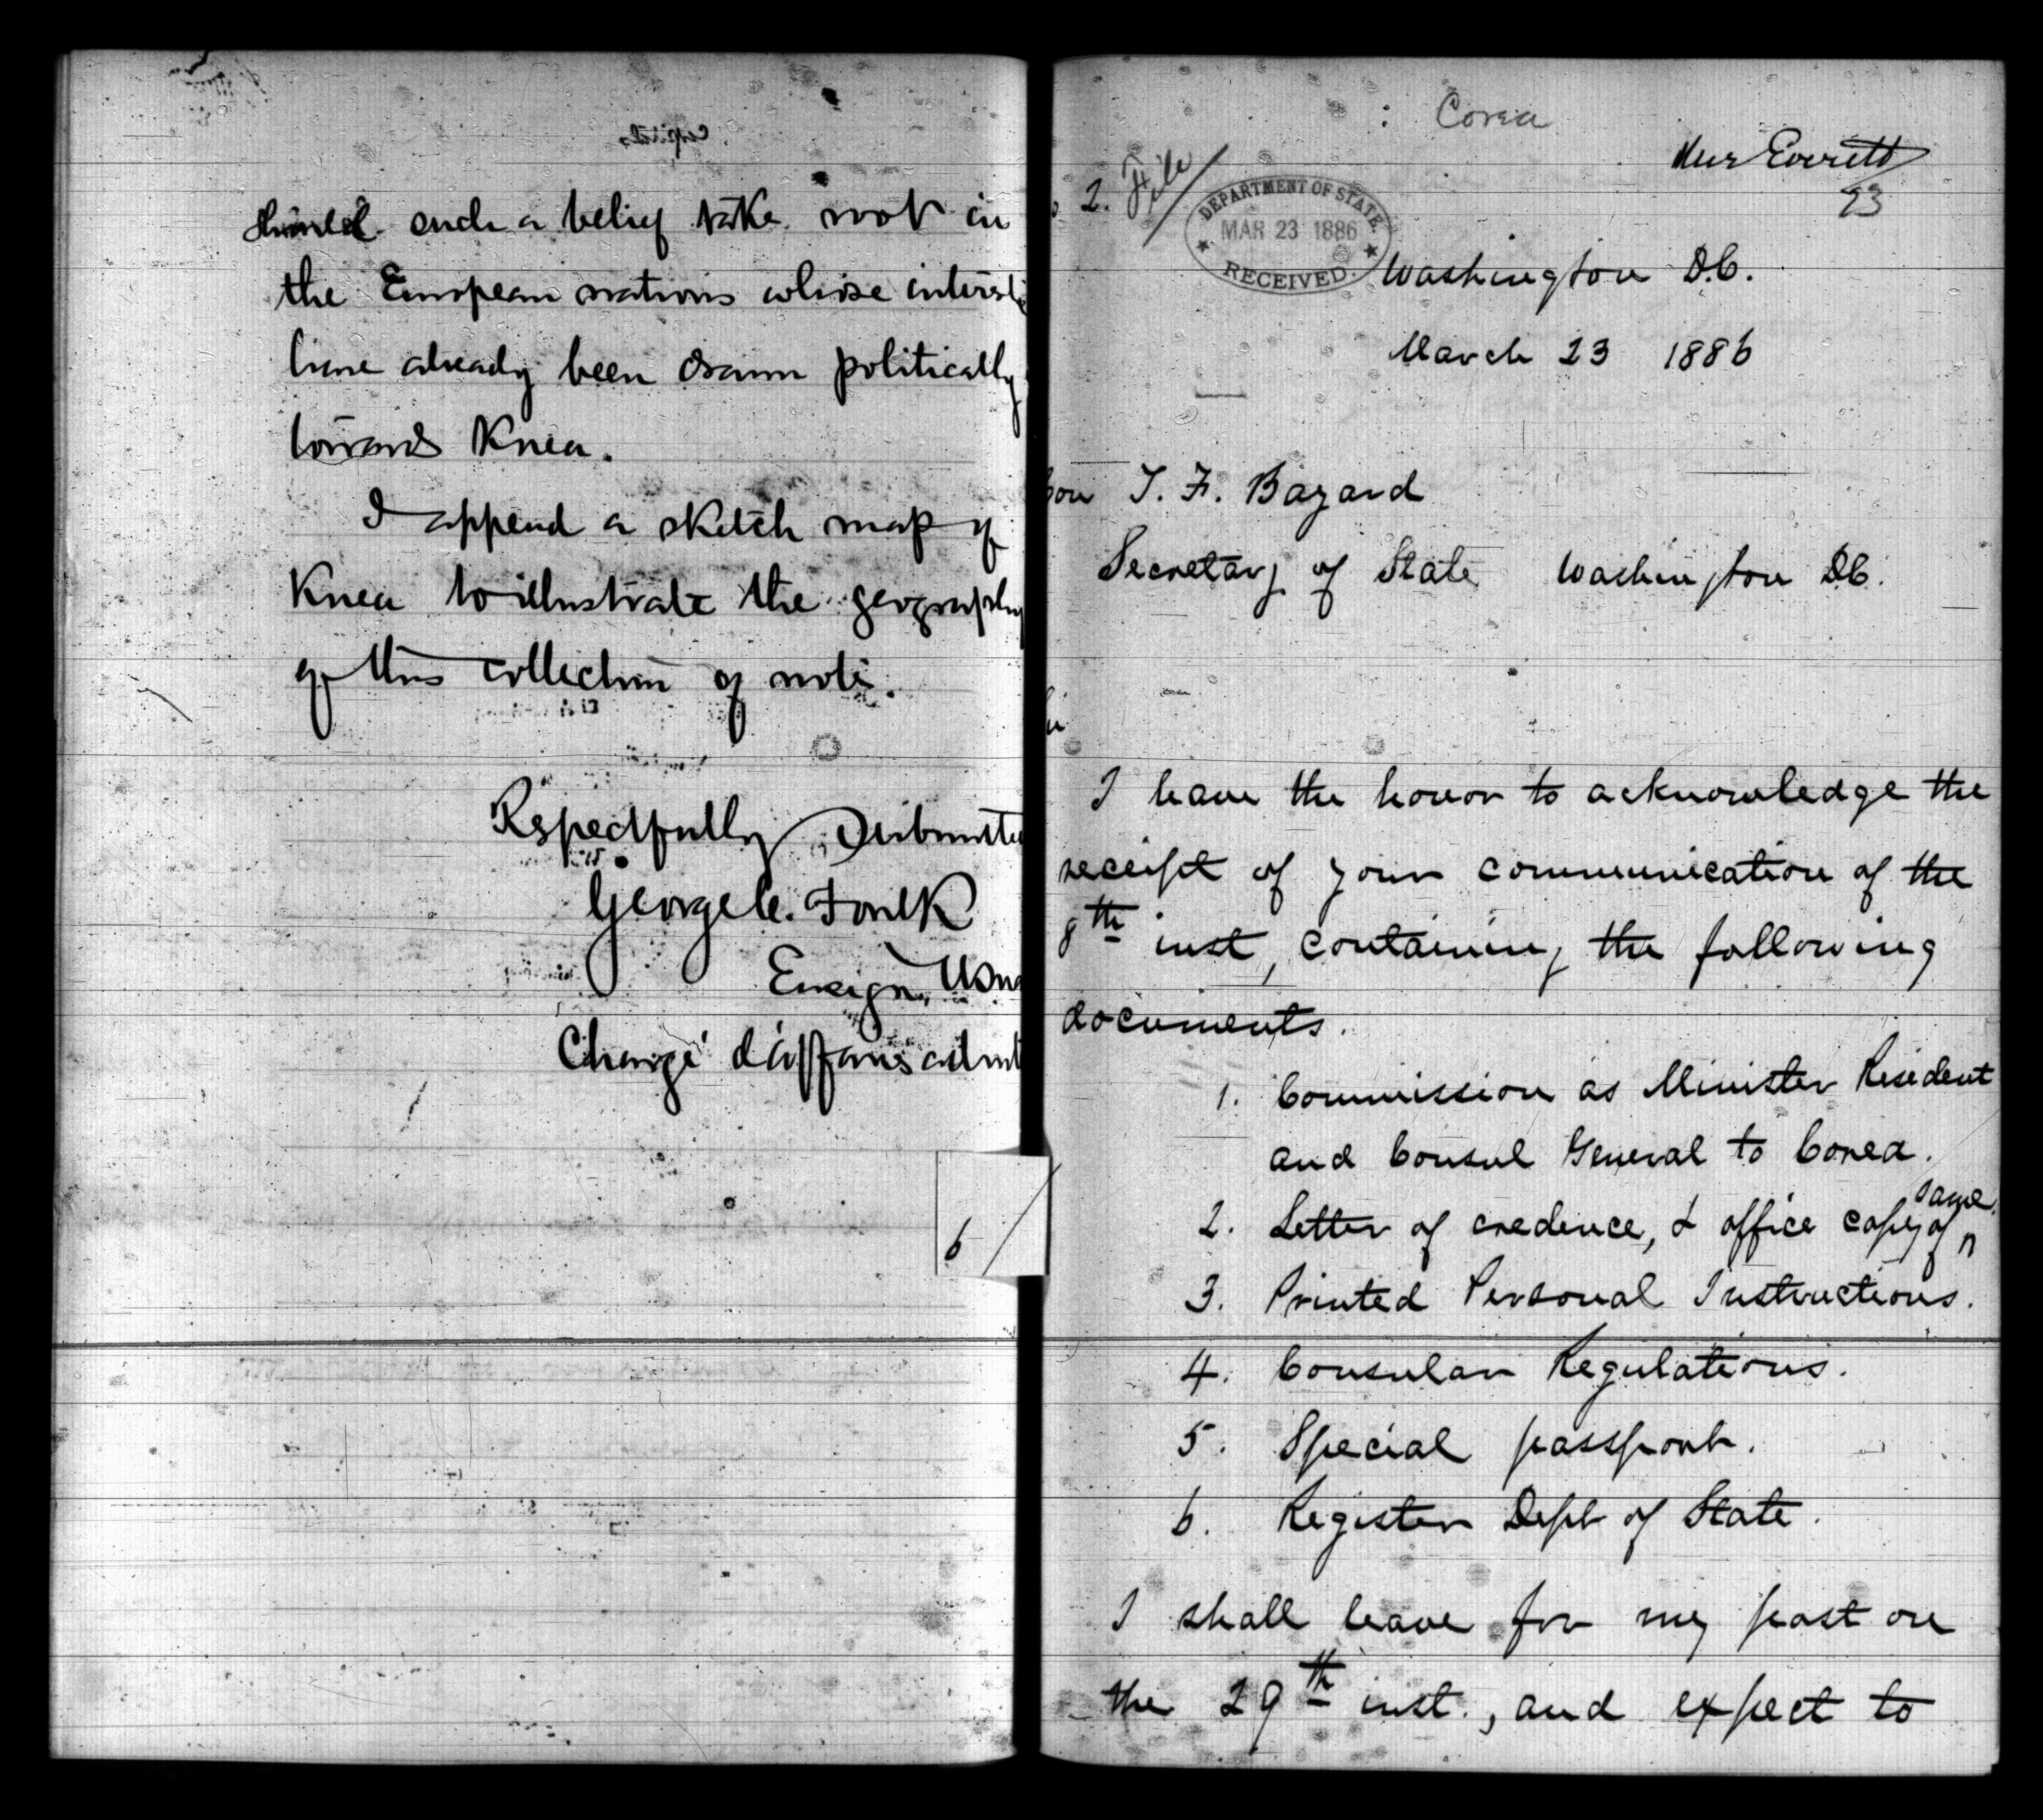 should such a belief take root in
the European nations whose interests
have already been drawn politically
towards Korea.
I append a sketch map of
Korea to illustrate the geography
of this collection of notes.
Respectfully Submitted
George C. Foulk
Ensign, USN
Chargé d'affaires ad int
6
Corea
Mr Everett
23
2.
File
DEPARTMENT OF STATE.
MAR 23 1886
RECEIVED.
Washington D.C.
March 23 1886
Hon T. F. Bayard
Secretary of State Washington DC.
I have the honor to acknowledge the
receipt of your communication of the
8th inst, containing the following
documents.
1. Commission as Minister Resident
and Consul General to Corea.
2. Letter of credence, & office copy of same.
3. Printed Personal Instructions.
4. Consular Regulations.
5. Special passport.
6. Register Dept of State.
I shall leave for my post on
the 29th inst., and expect to